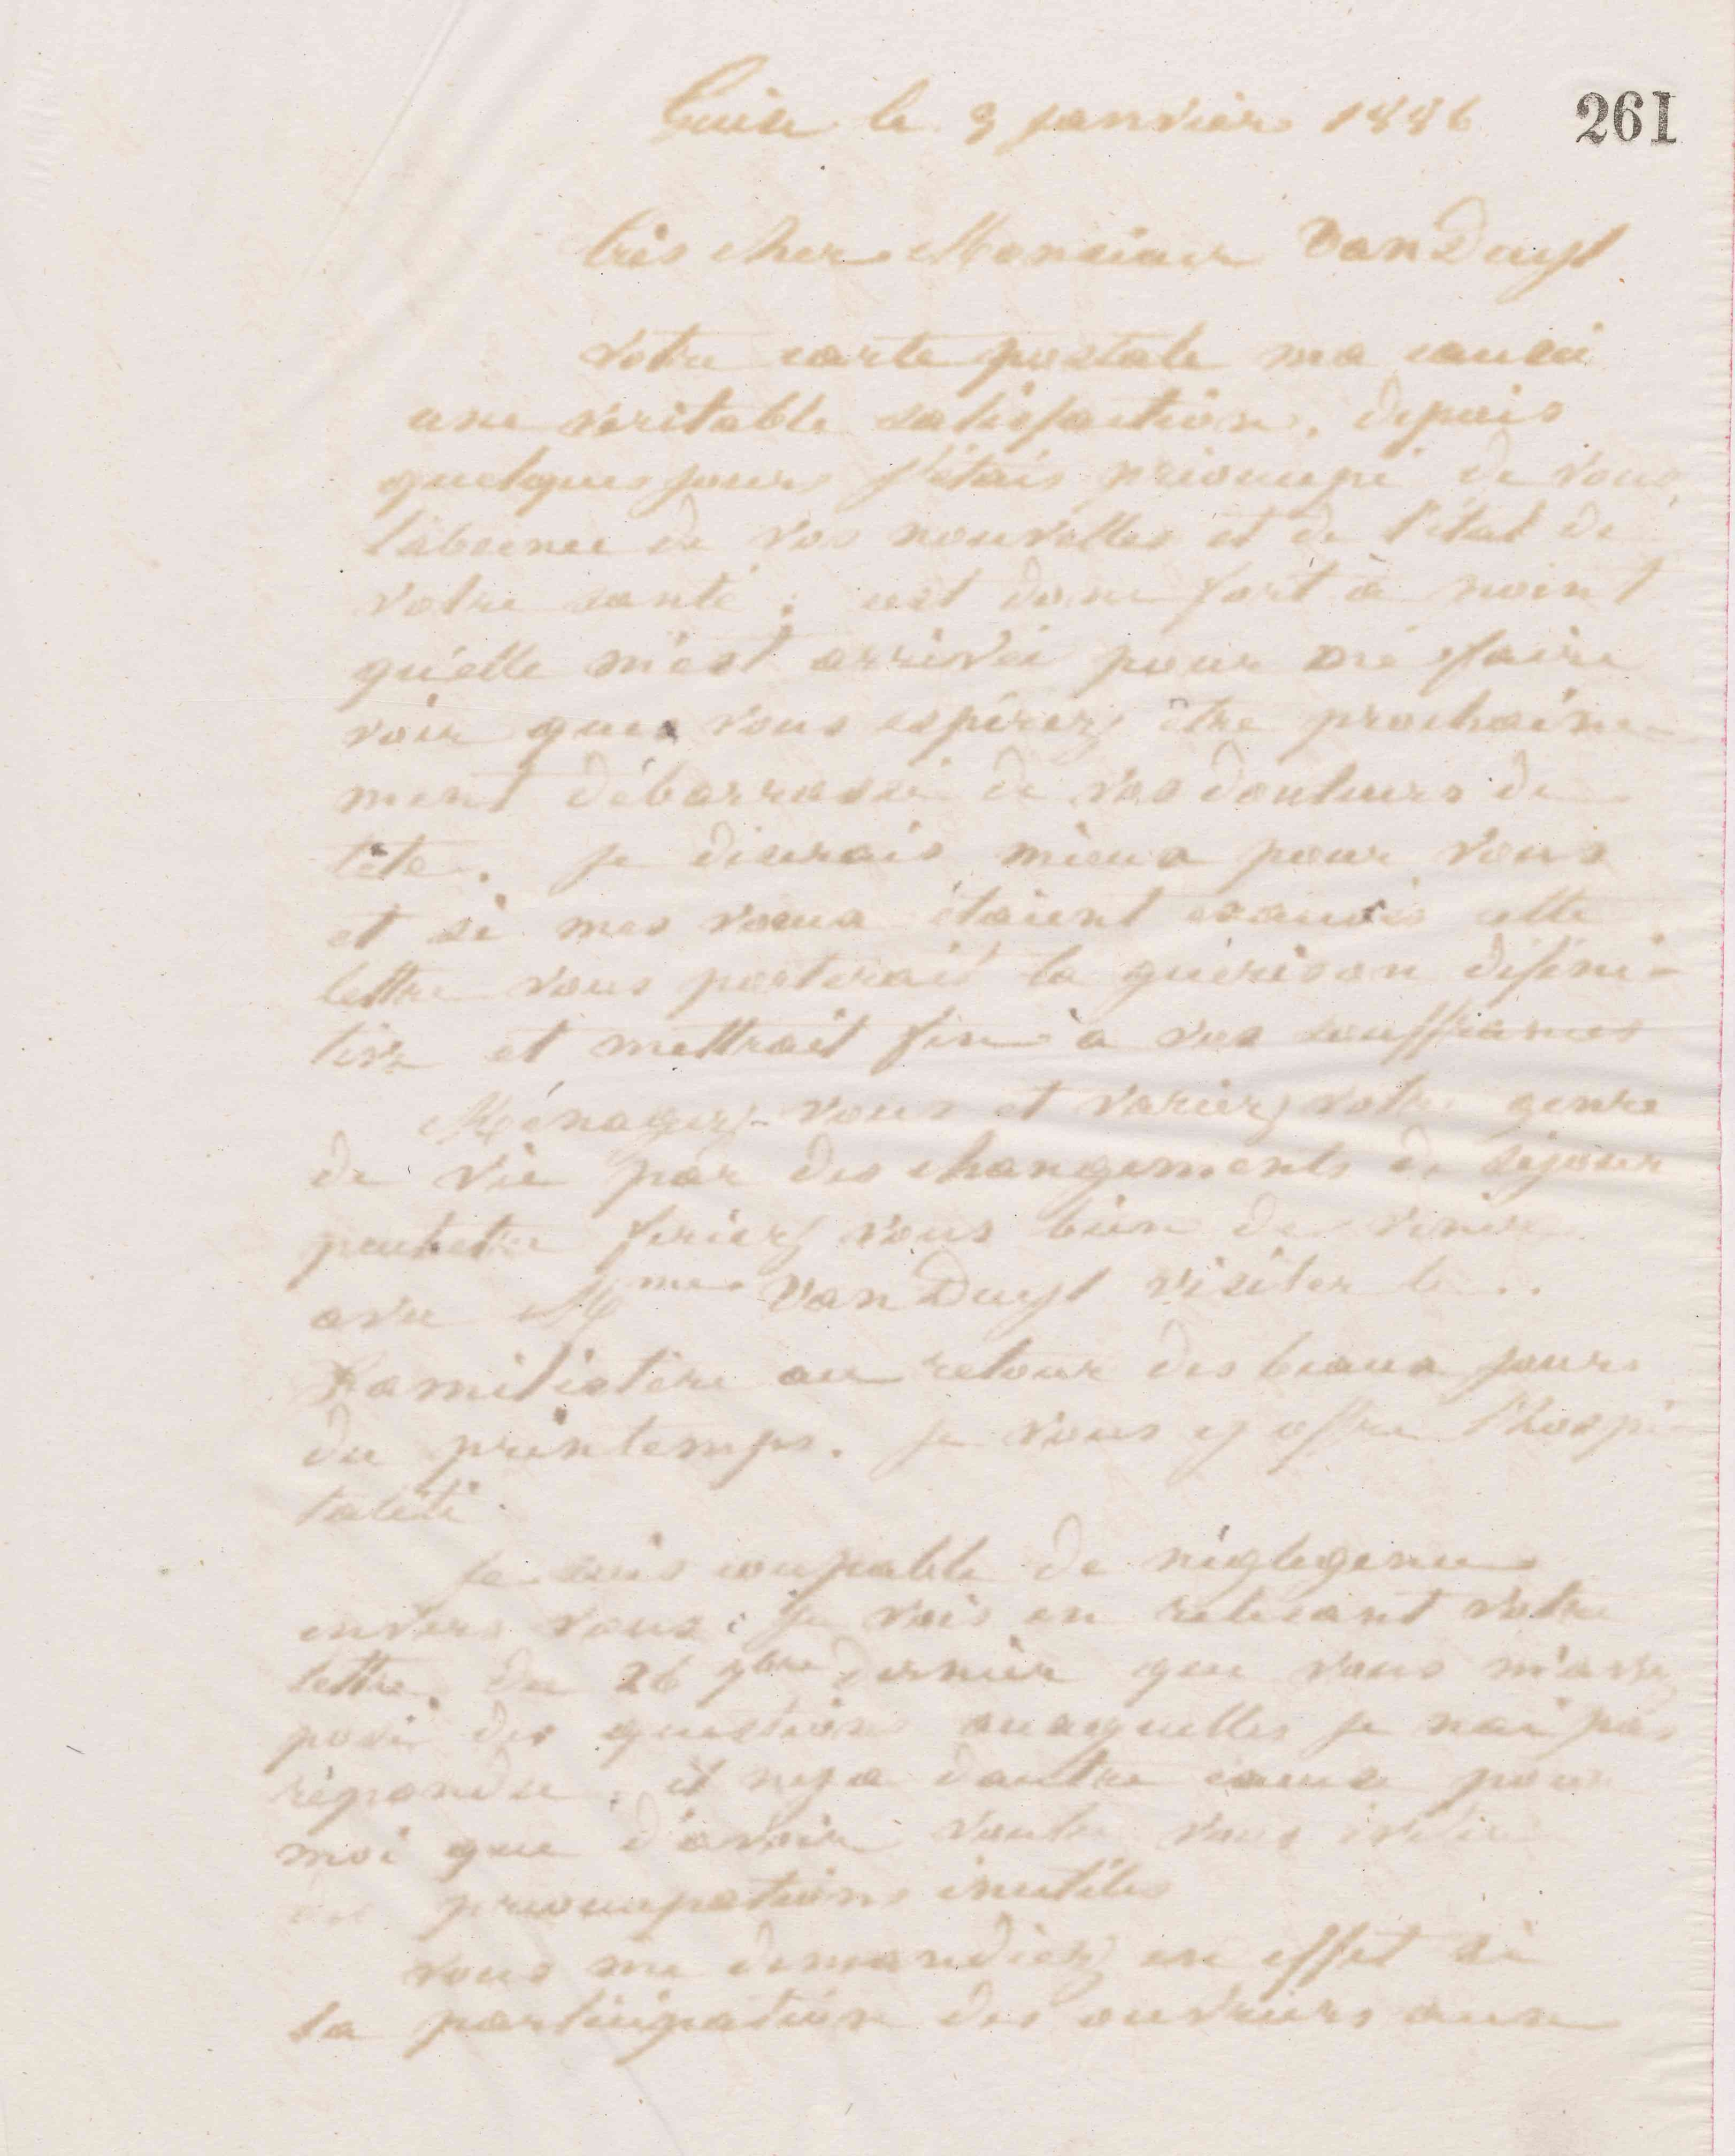 Guise le 3 janvier 1886
261
très cher Monsieur Van Duyl
Votre carte postale ma causé
une véritable satisfaction, depuis
quelques jours j'étais préoccupé de vous,
l'absence de vos nouvelles et de l'état de
votre santé ; cest donc fort à point
qu'elle m'est arrivée pour me faire
voir que vous espérez être prochaine-
ment débarrassé de vos douleurs de
tête. Je désirais mieux pour vous
et si mes voeux étaient exaucés cette
lettre vous porterait la guérison défini-
tive et mettrait fin à vos souffrances
Ménagez-vous et variez votre genre
de vie par des changements de séjour
peutetre feriez vous bien de venir
avec Mme Van Duyl visiter le ..
Familistère au retour des beaux jours
du printemps. Je vous y offre l'hospi-
talité.
Je suis coupable de négligence
envers vous : je vois en relisant votre
lettre du 26 9bre dernier que vous m'avez
posé des questions auxquelles je nai pas
répondu. il ny a dautre cause pour
moi que d'avoir voulu vous éviter
des préoccupations inutiles
vous me demandiez en effet si
la participation des ouvriers aux